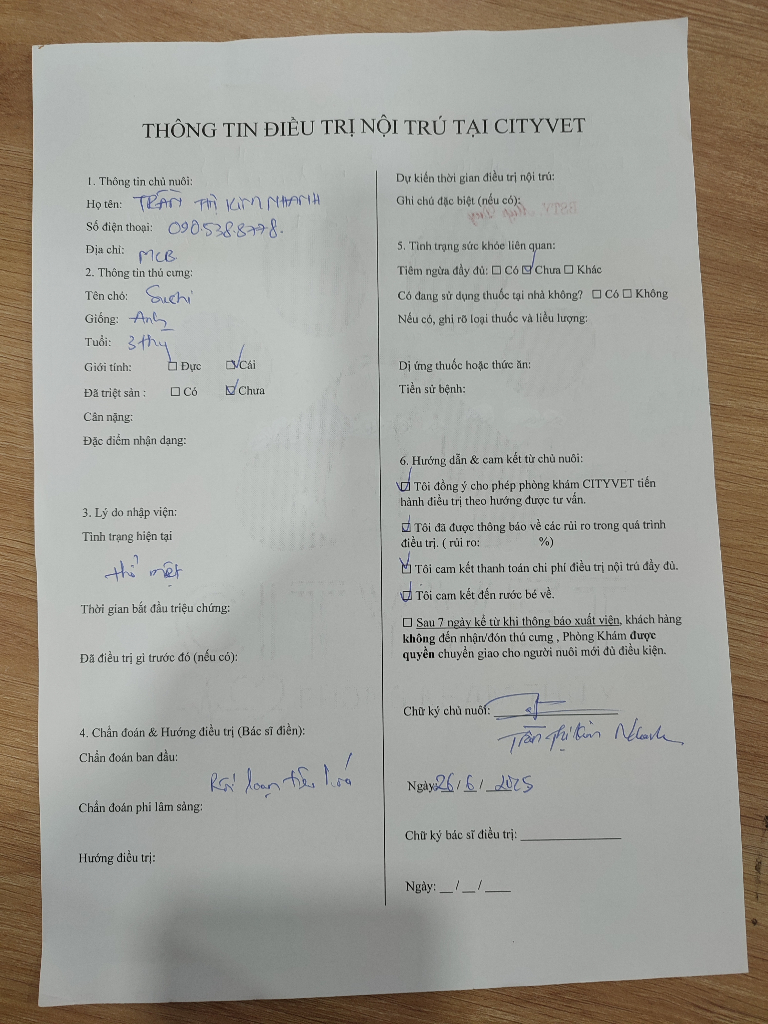 THÔNG TIN ĐIỀU TRỊ NỘI TRÚ TẠI CITYVET
1. Thông tin chủ nuôi:
Họ tên: TRẦN THỊ KIM NHANH
Số điện thoại: 090.538.8778.
Địa chỉ: MCB
2. Thông tin thú cưng:
Tên chó: Suchi
Giống: Anh
Tuổi: 3 thg
Giới tính: ☐ Đực ☑ Cái
Đã triệt sản : ☐ Có ☑ Chưa
Cân nặng:
Đặc điểm nhận dạng:
3. Lý do nhập viện:
Tình trạng hiện tại
thở mệt
Thời gian bắt đầu triệu chứng:
Đã điều trị gì trước đó (nếu có):
4. Chẩn đoán & Hướng điều trị (Bác sĩ điền):
Chẩn đoán ban đầu:
Rối loạn tiêu hoá
Chẩn đoán phi lâm sàng:
Hướng điều trị:
Dự kiến thời gian điều trị nội trú:
Ghi chú đặc biệt (nếu có):
5. Tình trạng sức khỏe liên quan:
Tiêm ngừa đầy đủ: ☐ Có ☑ Chưa ☐ Khác
Có đang sử dụng thuốc tại nhà không? ☐ Có ☐ Không
Nếu có, ghi rõ loại thuốc và liều lượng:
Dị ứng thuốc hoặc thức ăn:
Tiền sử bệnh:
6. Hướng dẫn & cam kết từ chủ nuôi:
☑ Tôi đồng ý cho phép phòng khám CITYVET tiến
hành điều trị theo hướng được tư vấn.
☑ Tôi đã được thông báo về các rủi ro trong quá trình
điều trị. ( rủi ro: %)
☑ Tôi cam kết thanh toán chi phí điều trị nội trú đầy đủ.
☑ Tôi cam kết đến rước bé về.
☐ Sau 7 ngày kể từ khi thông báo xuất viện, khách hàng
không đến nhận/đón thú cưng , Phòng Khám được
quyền chuyển giao cho người nuôi mới đủ điều kiện.
Chữ ký chủ nuôi:
Trần Thị Kim Nhanh
Ngày: 26 / 6 / 2025
Chữ ký bác sĩ điều trị: ______
Ngày: __ / __ / ____